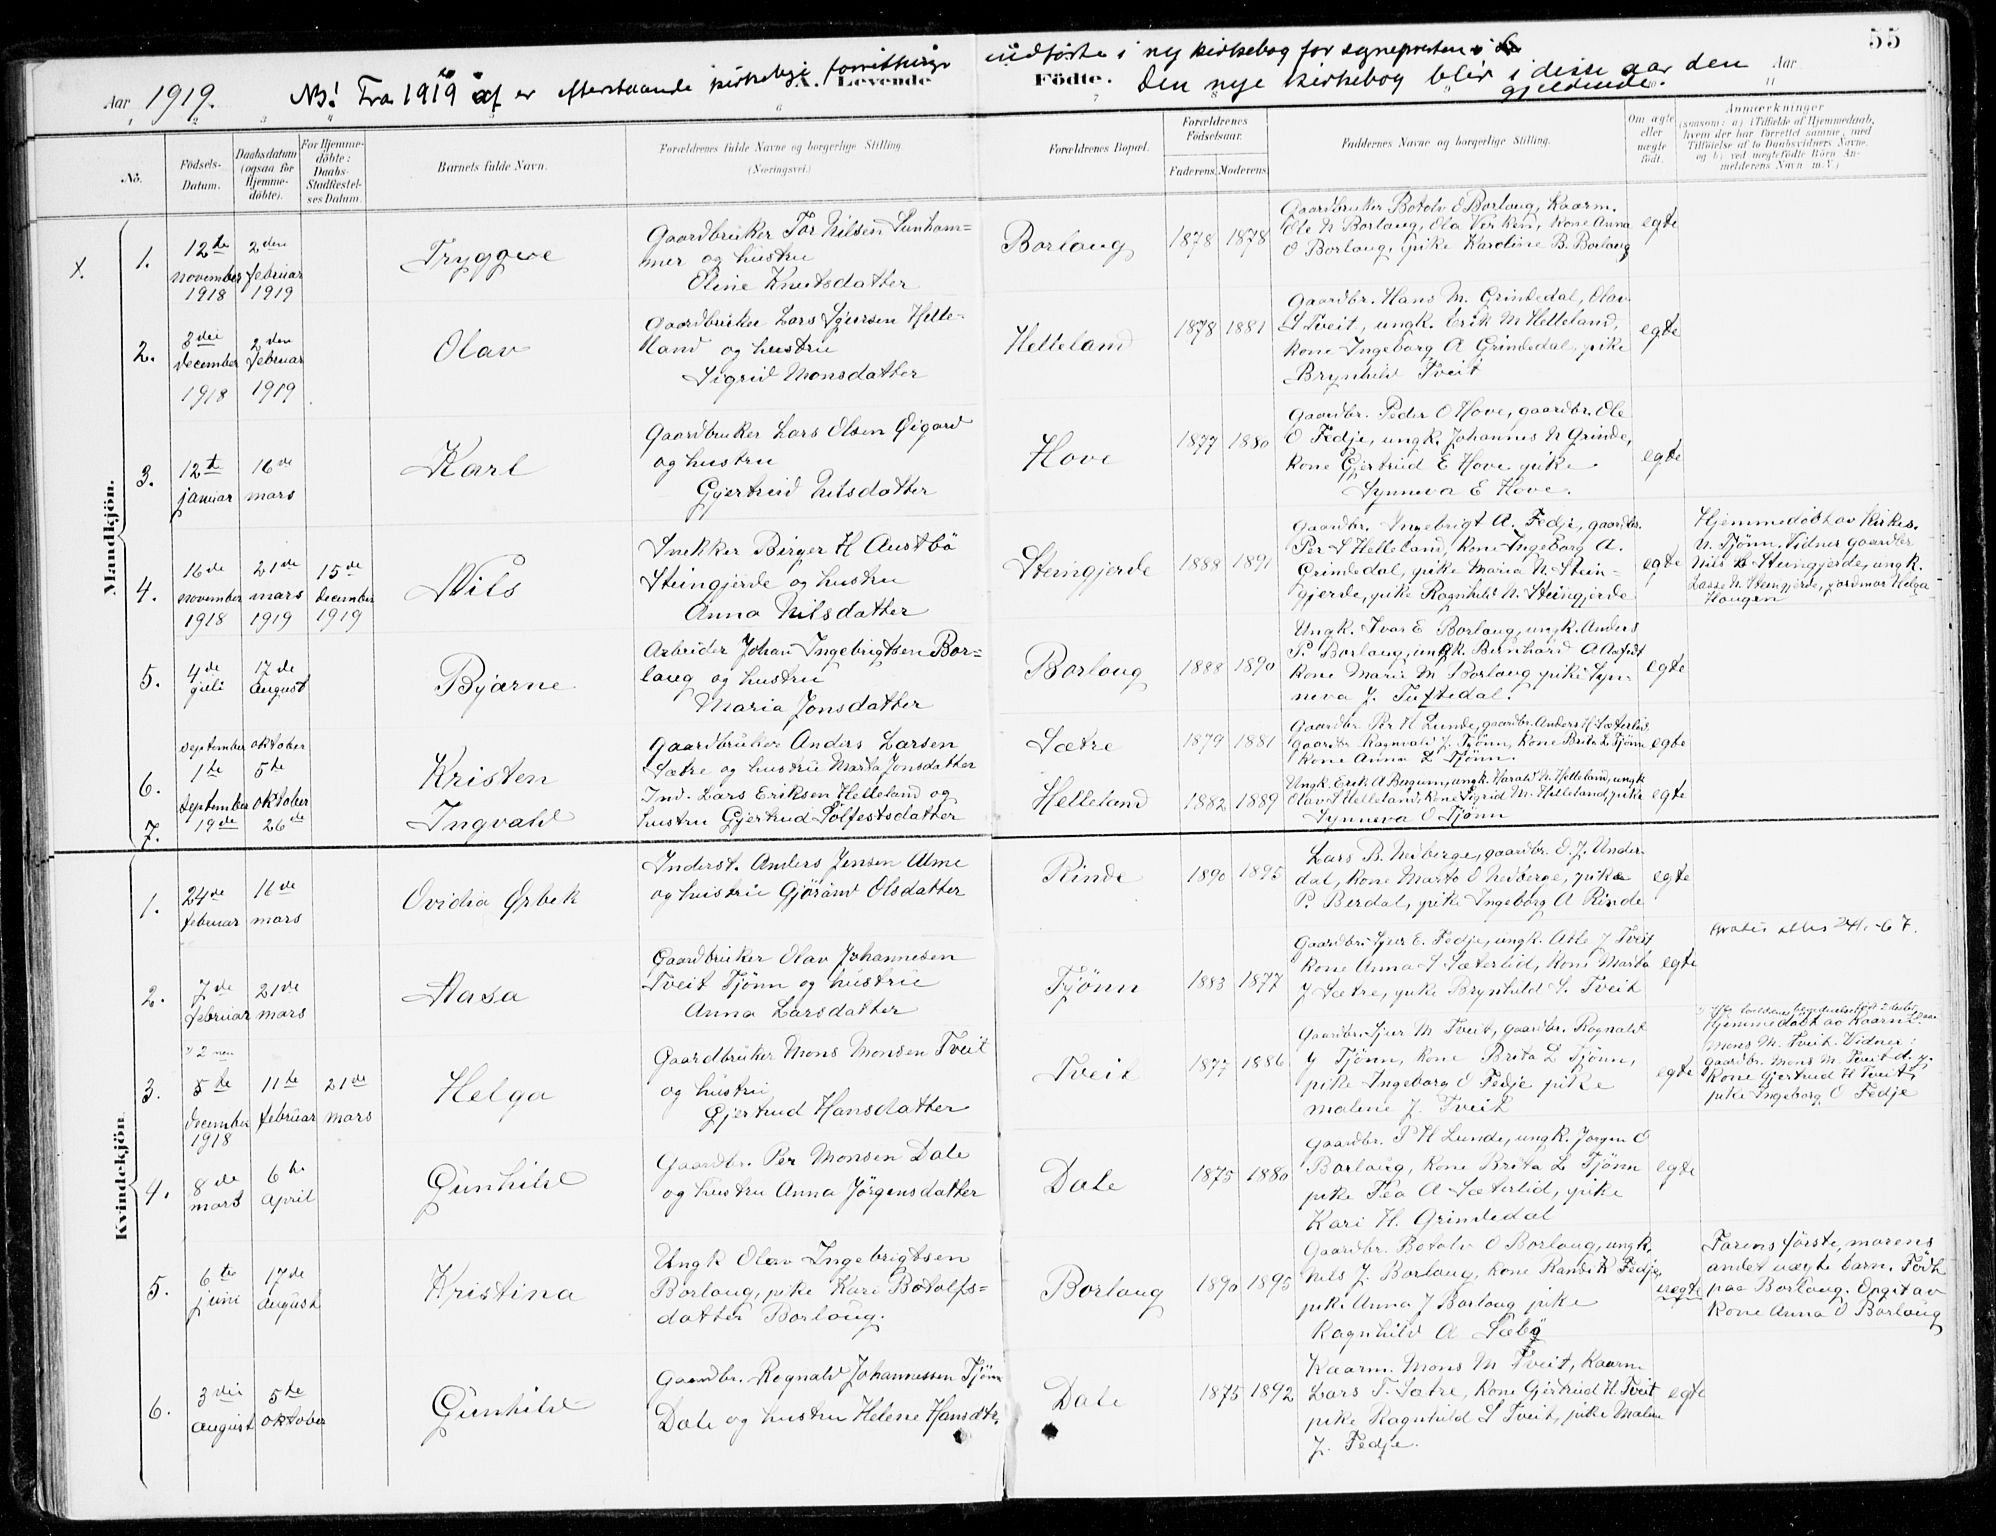 55
NB! Fra 1919 af er efterstaaende kirkelige forretninger indførte i ny kirkebog for sognepresten
Den nye kirkebog blir i disse aar den gjeldende.
Aar 1919.
A. Levende Födte.
Aar
1 2 3 5 6 7 8 9 10 11
No.
Födsels-Datum.
Daabsdatum (ogsaa for Hjemmedöbte).
For Hjemmedöbte: Daabs-Stadfæstelses Datum.
Barnets fulde Navn.
Forældrenes fulde Navne og borgerlige Stilling. (Næringsvei.)
Forældrenes Bopæl.
Forældrenes Födselsaar.
Faderens. Moderens.
Faddernes Navne og borgerlige Stilling.
Om ægte eller uægte födt.
Anmærkninger
(saasom: a) i Tilfælde af Hjemmedaab, hvem der har forrettet samme, med Tilföielse af to Daabsvidners Navne, og b) ved uægtefödte Börn Anmelderens Navn m.V.)
Mandkjön.
1.
12te november 1918
2den februar 1919
Tryggve
Gaardbruker Tor Nilsen Sunham=
mer og hustru
Oline Knutsdatter
Borlaug
1878 1878
Gaardbruker Botolv E Borlaug, Kaarm.
Ole N Borlaug, Ola Virken, Kone Anna
O Borlaug, pike Karoline B. Borlaug
egte
2.
3die december 1918
2den februar 1919
Olav
Gaardbruker Lars Sjursen Helle-
land og hustru
Sigrid Monsdatter
Helleland
1878 1881
Gaardbr. Hans M. Grindedal, Olav
S Tveit, ungk. Erik M Helleland,
Kone Ingeborg A Grindedal, pike
Brynhild Tveit
egte
3.
12te januar
16de mars
Karl
Gaardbruker Lars Olsen Øigard
og hustru
Gjertrud Nilsdatter
Hove
1877 1880
Gaardbr. Peder O Hove, gaardbr. Ole
O Fedje, ungk. Johannes N Grinde,
Kone Gjertrud E Hove pike
Synneva E Hove.
egte
4.
16de november 1918
21de mars 1919
15de december 1919
Nils
Snekker Birger H Austbö
Steingjerde og hustru
Anna Nilsdatter
Steingjerde
1888 1891
Gaardbr. Ingebrigt A. Fedje, gaardbr.
Per S Helleland, Kone Ingeborg A.
Grindedal, pike Maria N. Stein-
gjerde, pike Ragnhild N. Steingjerde
egte
Hjemmedöbt av Kirkes.
N. Tjönn, Vidner gaardbr
Nils L Steingjerde, ungk.
Lasse N. Steingjerde, jordmor Helga
Haugen
5.
4de juli
17de august
Bjarne
Arbeider Johan Ingebrigtsen Bor=
laug og hustru
Maria Jonsdatter
Borlaug
1888 1890
Ungk. Ivar E Borlaug, ungk. Anders
P. Borlaug, ungk Bernhard A
Kone Maria M Borlaug pike Syn-
neva J. Tuftedal.
egte
6.
september 1te
oktober 5te
Kristen
Gaardbruker Anders Larsen
Sætre og hustru Marta Jonsdatter
Sætre
1879 1881
Gaardbr. Per H Lunde, gaardbr. Anders H. Sæterlid,
gaardbr. Ragnvald J. Tjönn, Kone Brita L Tjönn
Kone Anna L Tjönn.
egte
7.
september 19de
oktober 26de
Ingvald
Ind. Lars Eriksen Helleland og
hustru Gjertrud Sölfestsdatter
Helleland
1882 1889
Ungk. Erik A Bergum, ungk. Harald N. Helleland, ungk
Olav S Helleland, Kone Sigrid M. Helleland, pike
Synneva O Tjönn
egte
Kvindekjön
1.
24de februar
16de mars
Ovidia Ørbek
Inderst. Anders Jensen Alme
og hustru Gjörand Olsdatter
Rinde
1890 1895
Lars B. Neberge, gaardbr. O. J. Under-
dal, Kone Marta O Neberge, pike
P. Berdal, pike Ingeborg A Rinde
egte
2.
7de februar
21de mars
Aasa
Gaardbruker Olav Johannesen
Tveit Tjönn og hustru
Anna Larsdatter
Tjönn
1883 1877
Gaardbr. Sjur E. Fedje, ungk. Atle J Tveit,
Kone Anna S Sæterlid, Kone Marta
J Sætre, pike Brynhild S. Tveit
egte
3.
2nen
5te december 1918
11te februar
21de mars
Helga
Gaardbruker Mons Monsen Tveit
og hustru
Gjertrud Hansdatter
Tveit
1877 1886
Gaardbr. Sjur M Tveit, gaardbr. Ragnald
J Tjönn, Kone Brita L Tjönn,
pike Ingeborg O Fedje pike
Malene J. Tveit
egte
Hjemmedöbt av Kaarm.
Mons M. Tveit. Vidner:
gaardbr. Mons M. Tveit d. y.
Kone Gjertrud H Tveit,
pike Ingeborg O Fedje
4.
8de mars
6te april
Gunhild
Gaardbr. Per Monsen Dale
og hustru Anna Jörgensdatter
Dale
1875 1880
Gaardbr. P H Lunde, ungk. Jørgen O
Borlaug, Kone Brita L Tjönn
pike Pea A Sæterlid, pike
Kari H. Grindedal
egte
5.
6te juni
17de august
Kristina
Ungk Olav Ingebrigtsen
Borlaug, pike Kari Botolfs-
datter Borlaug.
Borlaug
1890 1895
Gaardbr. Botolv O Borlaug, ungk.
Nils J. Borlaug, Kone Randi K Fedje,
pike Anna J Borlaug pike
Ragnhild A Sæbö
uegte
Farens første, morens
andet uægte barn. Född
paa Borlaug. Opgit av
Kone Anna O Borlaug
6.
3die august
5te oktober
Gunhild
Gaardbr. Ragnald Johannessen Tjönn
Dale og hustru Helene Hansdtr.
Dale
1875 1892
Kaarm. Mons M Tveit, Kaarm.
Lars T. Sætre, Kone Gjertrud H Tveit
pike Ragnhild S Tveit, pike Malene
J. Fedje.
egte